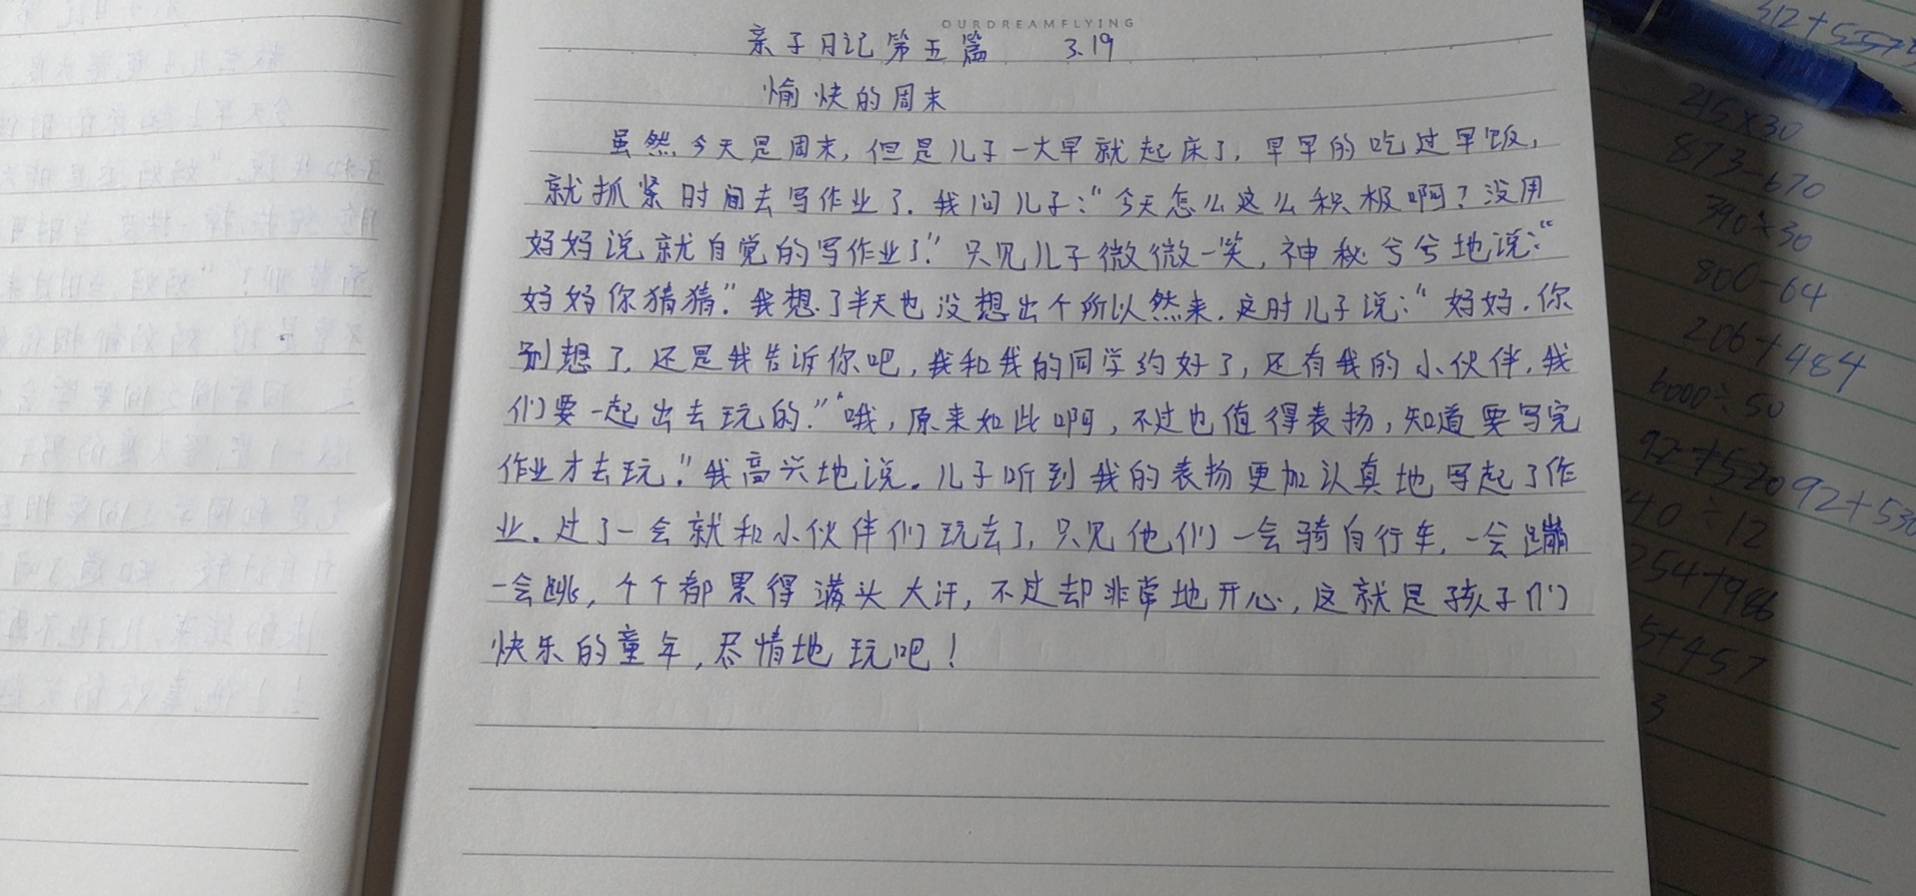 OURDREAMFLYING
亲子日记第五篇 3.19
愉快的周末
虽然今天是周末,但是儿子一大早就起床了,早早的吃过早饭,
就抓紧时间去写作业了.我问儿子:“今天怎么这么积极啊?没用
妈妈说就自觉的写作业了.”只见儿子微微一笑,神秘兮兮地说:“
妈妈你猜猜.”我想了半天也没想出个所以然来.这时儿子说:“妈妈.你
别想了.还是我告诉你吧,我和我的同学约好了,还有我的小伙伴.我
们要一起出去玩的.”“哦,原来如此啊,不过也值得表扬,知道要写完
作业才去玩.”我高兴地说.儿子听到我的表扬更加认真地写起了作
业.过了一会就和小伙伴们玩去了,只见他们一会骑自行车,一会蹦
一会跳,个个都累得满头大汗,不过却非常地开心,这就是孩子们
快乐的童年,尽情地玩吧!
312+557
215×30
873-670
390÷30
800-64
206+484
6000÷50
92+520 92+530
40÷12
254+986
5+457
3